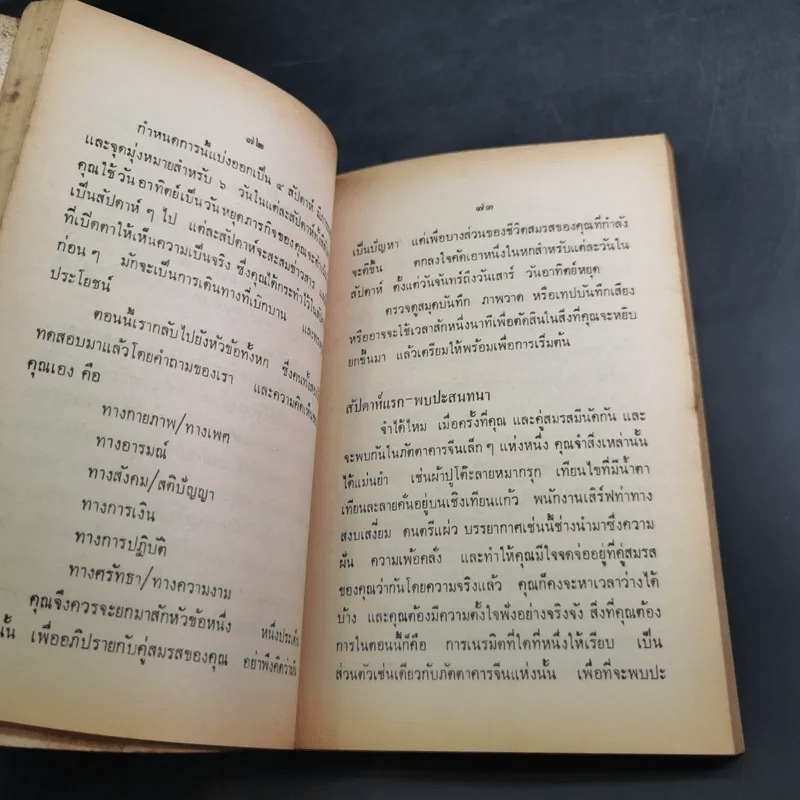 ๗๒
กำหนดการนี้แบ่งออกเป็น ๔ สัปดาห์
และจุดมุ่งหมายสำหรับ ๖ วันในแต่ละสัปดาห์
คุณใช้วันอาทิตย์เป็นวันหยุดภารกิจของคุณ
เป็นสัปดาห์ๆ ไป แต่ละสัปดาห์จะสะสมข่าวสาร
ที่เปิดตาให้เห็นความเป็นจริง ซึ่งคุณได้กระทำไว้
ก่อนๆ มักจะเป็นการเดินทางที่เบิกบาน
ประโยชน์
ตอนนี้เรากลับไปยังหัวข้อทั้งหก
ทดสอบมาแล้วโดยคำถามของเรา และความคิด
คุณเอง คือ
ทางกายภาพ/ทางเพศ
ทางอารมณ์
ทางสังคม/สติปัญญา
ทางการเงิน
ทางการปฏิบัติ
ทางศรัทธา/ทางความงาม
คุณจึงควรจะยกมาสักหัวข้อหนึ่ง
เพื่ออภิปรายกับคู่สมรสของคุณ อย่าพึงคิดว่า
๗๓
เป็นปัญหา แต่เพื่อบางส่วนของชีวิตสมรสของคุณที่กำลัง
จะดีขึ้น ตกลงใจคัดเอาหนึ่งในหกสำหรับแต่ละวันใน
สัปดาห์ ตั้งแต่วันจันทร์ถึงวันเสาร์ วันอาทิตย์หยุด
ตรวจดูสมุดบันทึก ภาพวาด หรือเทปบันทึกเสียง
หรืออาจจะใช้เวลาสักหนึ่งนาทีเพื่อตัดสินในสิ่งที่คุณจะหยิบ
ยกขึ้นมา แล้วเตรียมให้พร้อมเพื่อการเริ่มต้น
สัปดาห์แรก-พบปะสนทนา
จำได้ไหม เมื่อครั้งที่คุณ และคู่สมรสมีนัดกัน และ
จะพบกันในภัตตาคารจีนเล็กๆ แห่งหนึ่ง คุณจำสิ่งเหล่านั้น
ได้แม่นยำ เช่นผ้าปูโต๊ะลายหมากรุก เทียนไขที่มีน้ำตา
เทียนละลายคั่นอยู่บนเชิงเทียนแก้ว พนักงานเสิร์ฟท่าทาง
สงบเสงี่ยม ดนตรีแผ่ว บรรยากาศเช่นนี้ช่างนำมาซึ่งความ
ฝัน ความเพ้อคลั่ง และทำให้คุณมีใจจดจ่ออยู่ที่คู่สมรส
ของคุณว่ากันโดยความจริงแล้ว คุณก็คงจะหาเวลาว่างได้
บ้าง และคุณต้องมีความตั้งใจฟังอย่างจริงจัง สิ่งที่คุณต้อง
การในตอนนี้ก็คือ การเนรมิตที่ใดที่หนึ่งให้เรียบ เป็น
ส่วนตัวเช่นเดียวกับภัตตาคารจีนแห่งนั้น เพื่อที่จะพบปะ